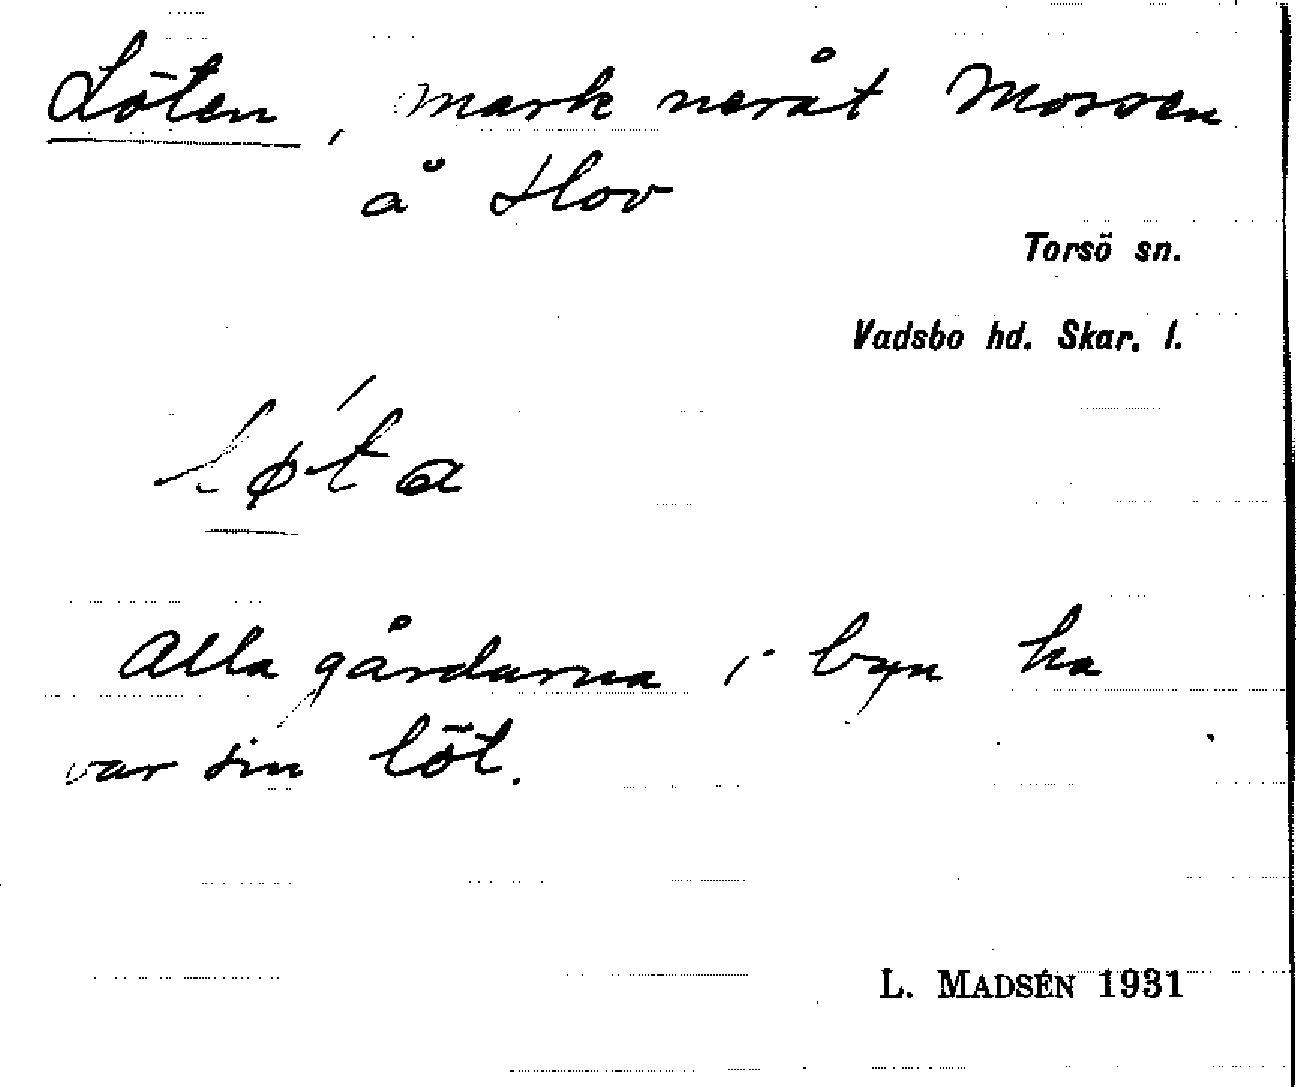 Löten, mark neråt Mossen
å Hov
Torsö sn.
Vadsbo hd. Skar. l.
Alla gårdarna i byn ha
var sin löt.
L. MADSÉN 1931